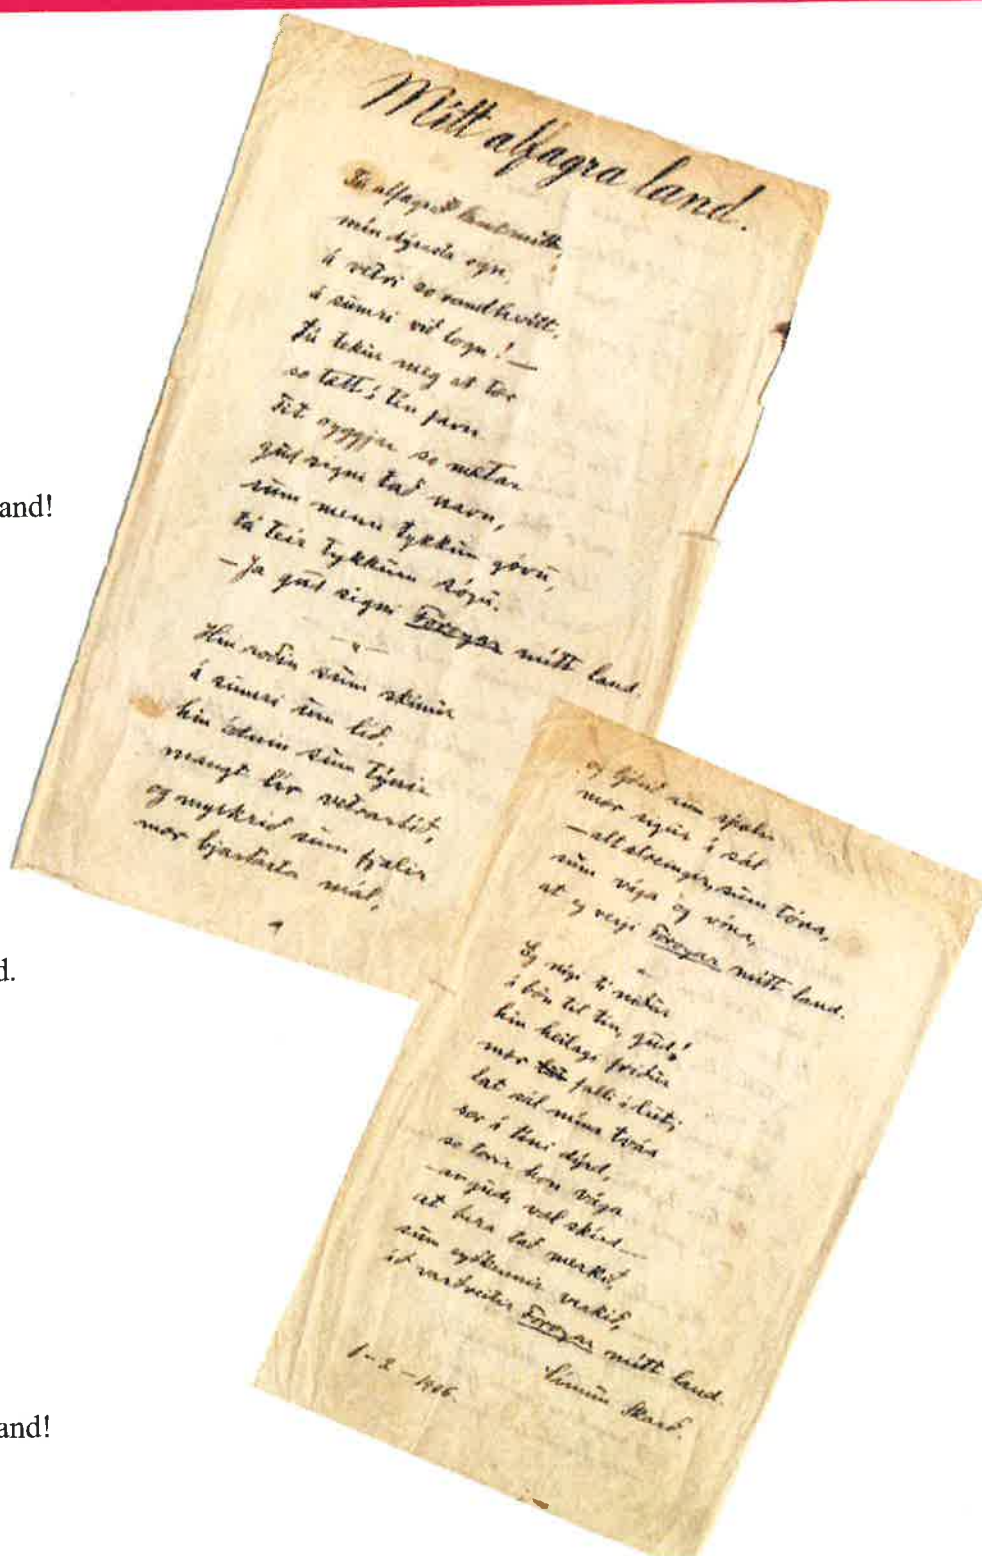 and!
d.
and!
Mítt alfagra land.
Tú alfagrað land mítt,
mín dýrasta ogn,
á vetri so randhvítt,
á sumri við logn! —
Tú tekur meg at tær
so tætt í tín favn
Tit oyggjar so mætar
guð signi tað navn,
sum menn tykkum góvu,
tá teir tykkum sógu.
— Ja guð signi Føroyar mítt land.
Hin roðin sum skínur
á sumri um líð,
hin ódnin sum týnir
mangt lív vetrartíð,
og myrkrið sum fjalir
mær bjartasta mál,
og ljósið sum spælir
mær sigur í sál
— alt streingir, sum tóna,
sum vága og vóna,
at eg verji Føroyar mítt land.
Eg nígi tí niður
í bøn til tín, guð!
hin heilagi friður
mær falli í lut;
lat sál mína tváa
sær í tíni dýrd,
so torir hon vága
— av guði væl skírd —
at bera tað merkið,
sum eyðkennir verkið,
ið varðveitir Føroyar mítt land.
Símun Skarð.
1-2-1906.